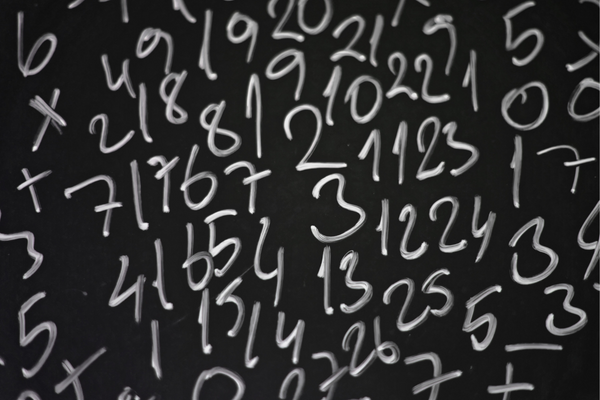 9 19 20 21 9 5
6 4 18 9 10 22 1 0 0
x 2 1 8 1 2 11 23 1 7
+ 7 1 17 16 7 3 12 24 3
3 41 6 5 4 13 25 5 3
5 1 15 14 26 7 −
+ 0 2 7 +